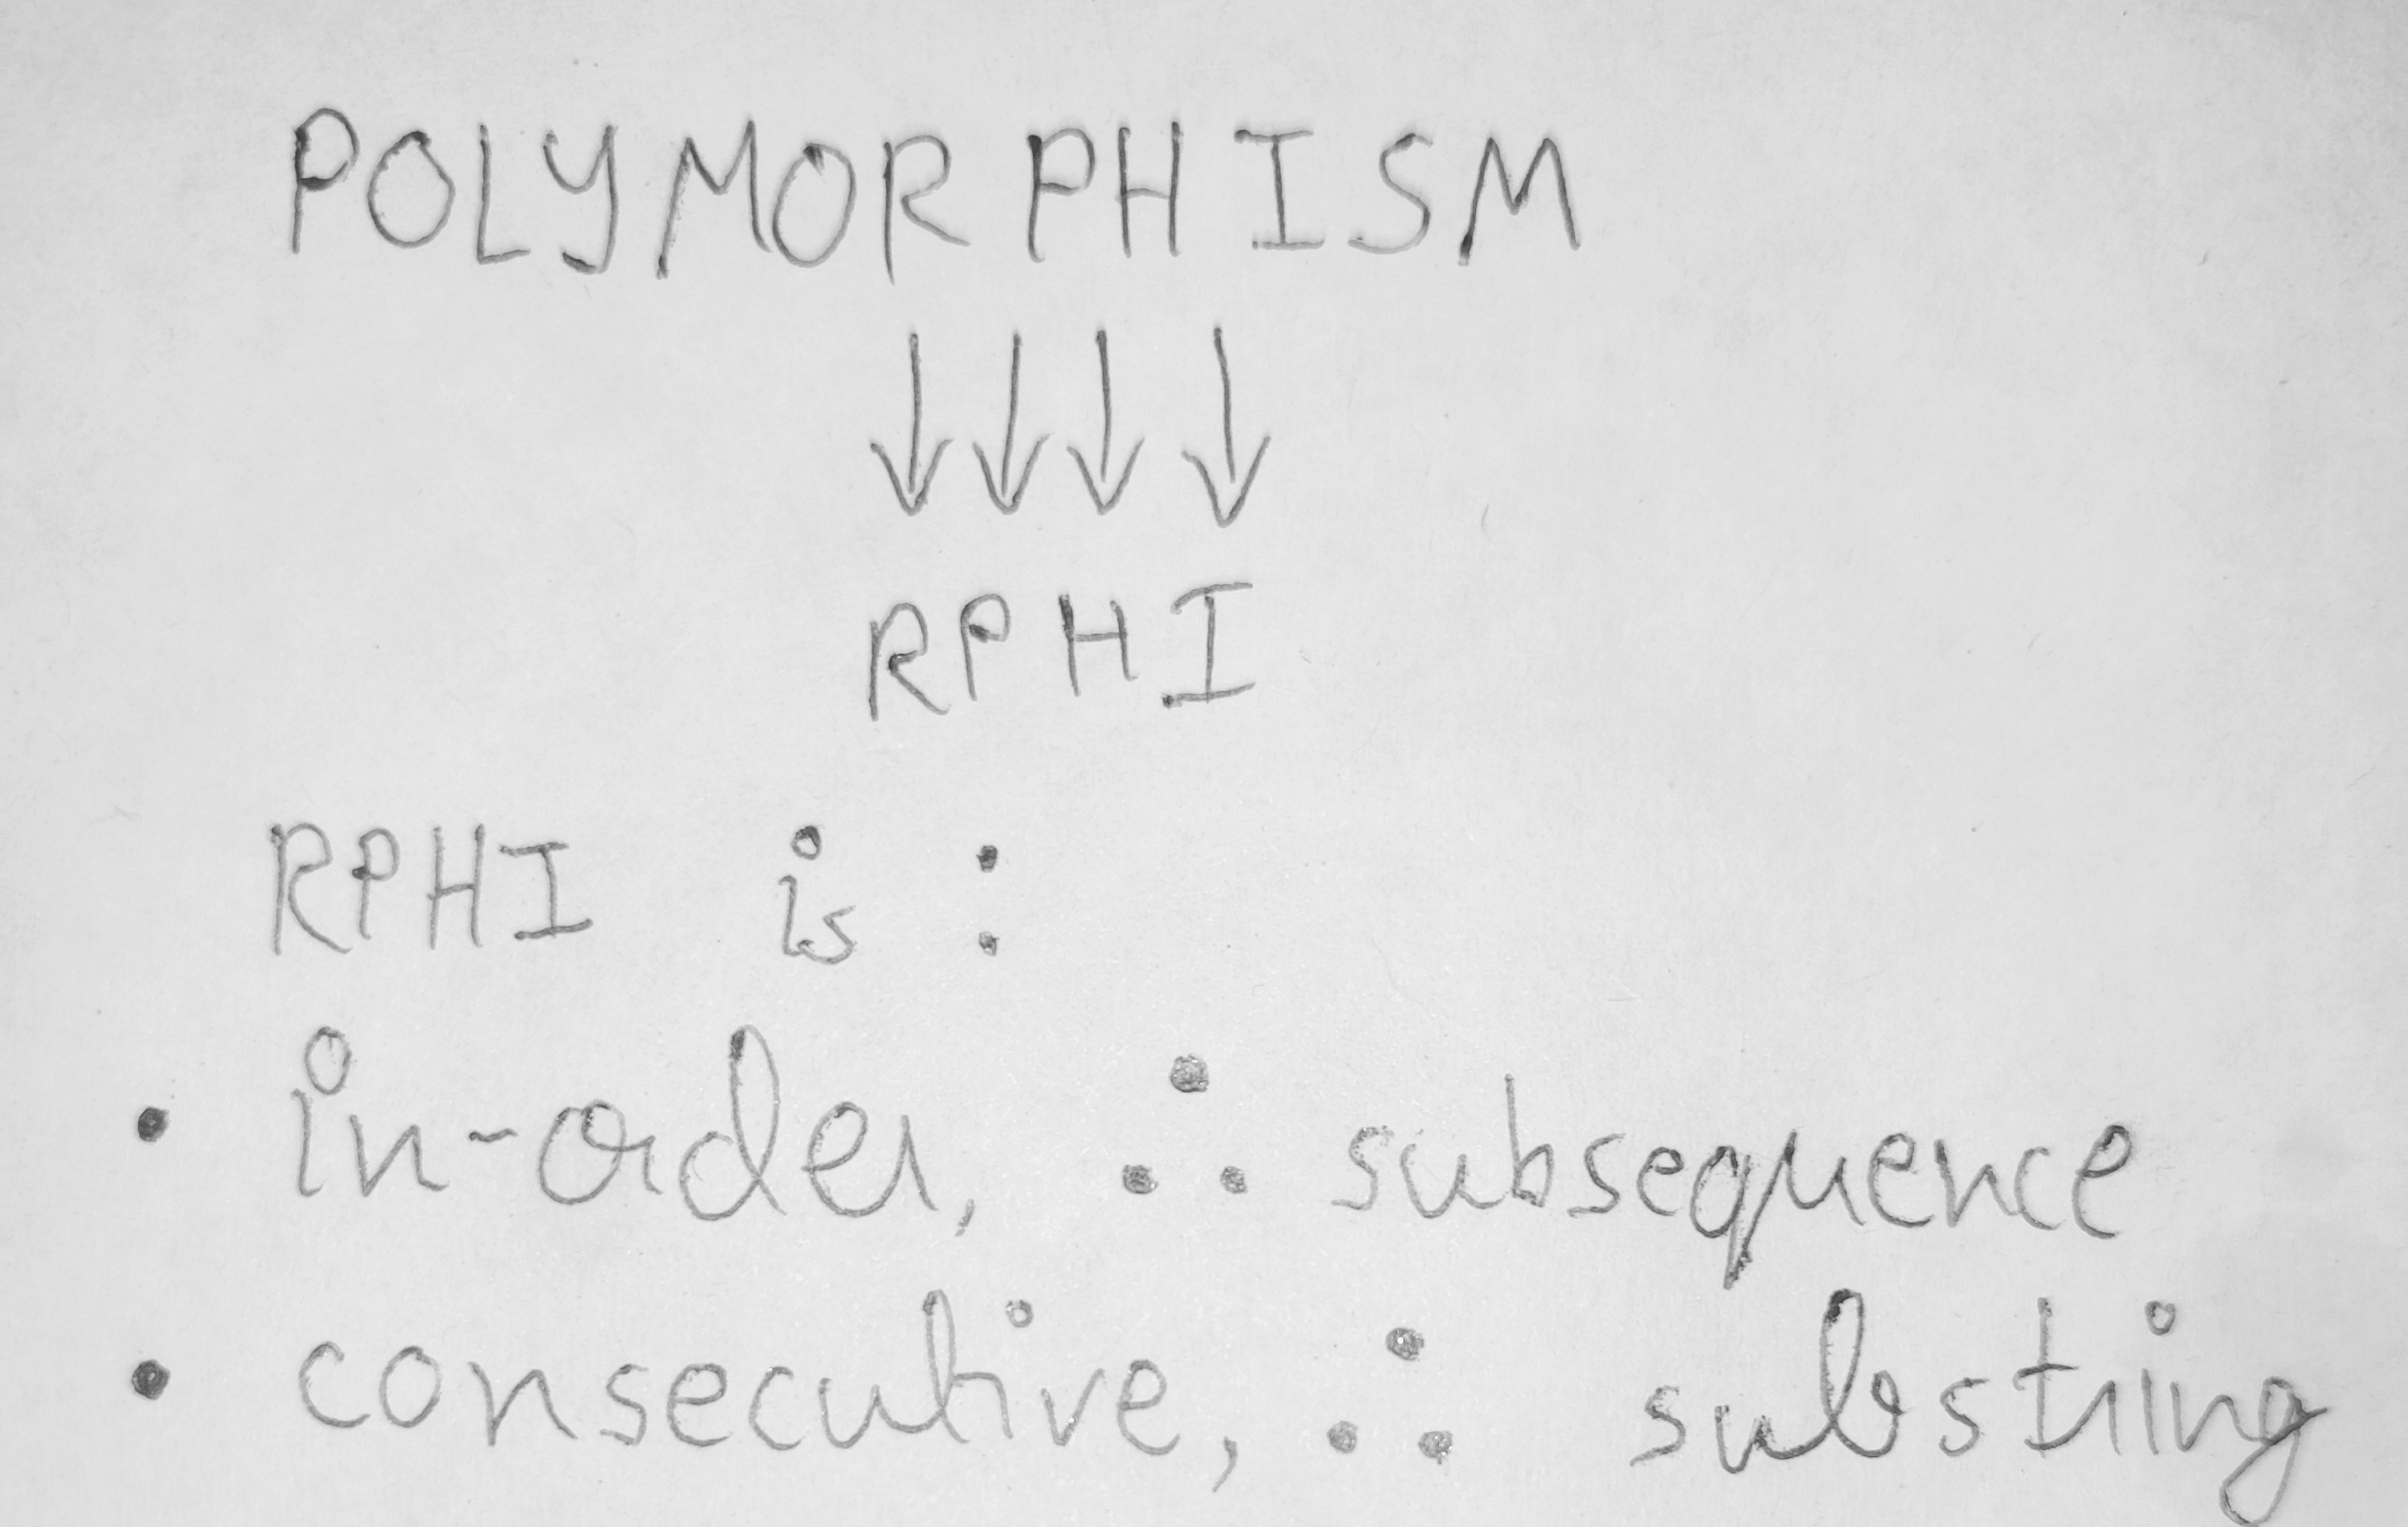 POLYMORPHISM
↓↓↓↓
RPHI
RPHI is :
• in-order, ∴ subsequence
• consecutive, ∴ substring